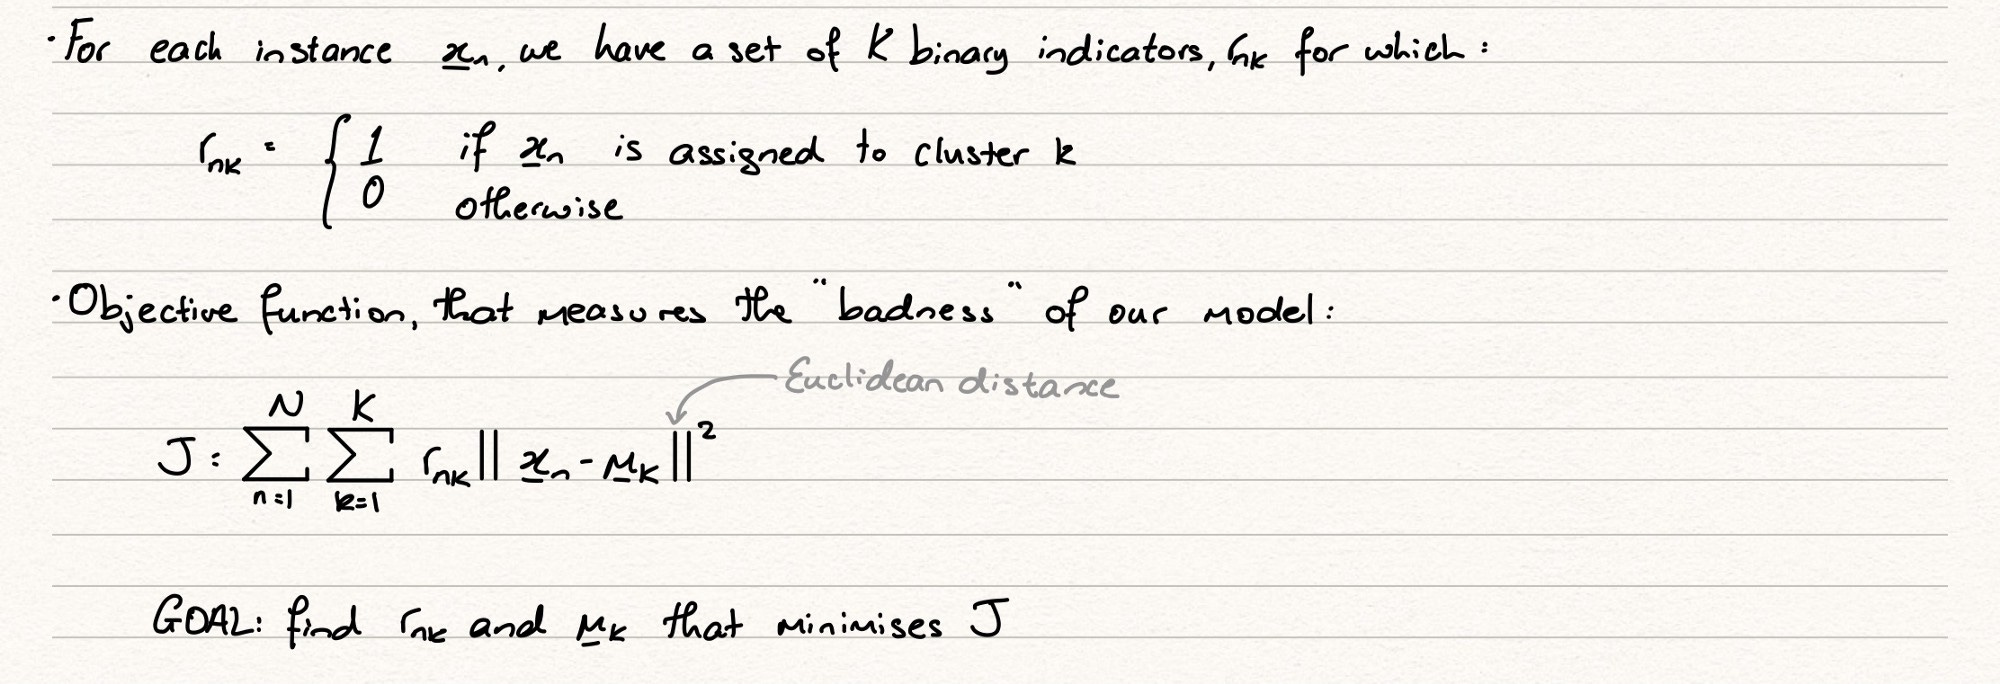 ·For each instance x̲ₙ, we have a set of K binary indicators, rₙₖ for which:
rₙₖ = { 1 if x̲ₙ is assigned to cluster k
0 otherwise
·Objective function, that measures the "badness" of our model:
Euclidean distance
J = ∑ₙ₌₁ᴺ ∑ₖ₌₁ᴷ rₙₖ || x̲ₙ - μ̲ₖ ||²
GOAL: find rₙₖ and μ̲ₖ that minimises J